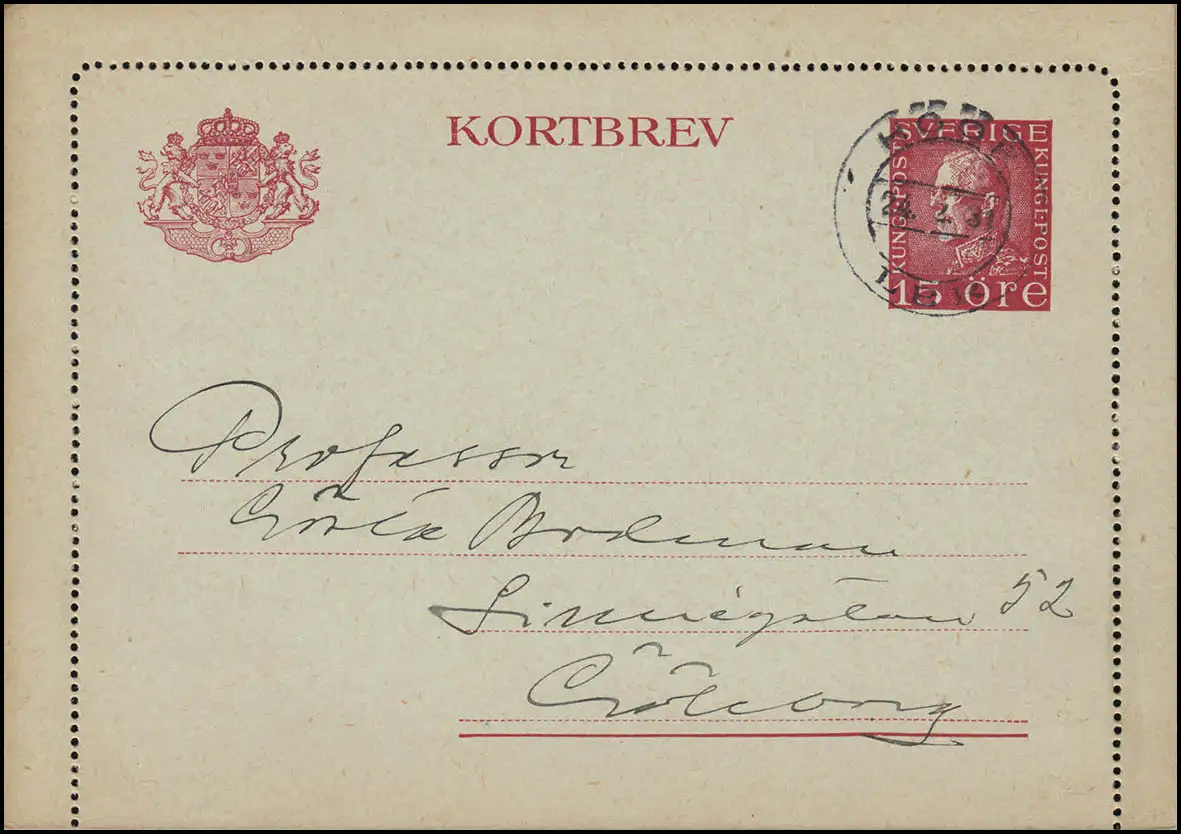 KORTBREV
SVERIGE
KUNGL·POST
KUNGL·POST
15 öre
24. 2. 31
LBR
Professor
Gösta Bodman
Linnégatan 52
Göteborg